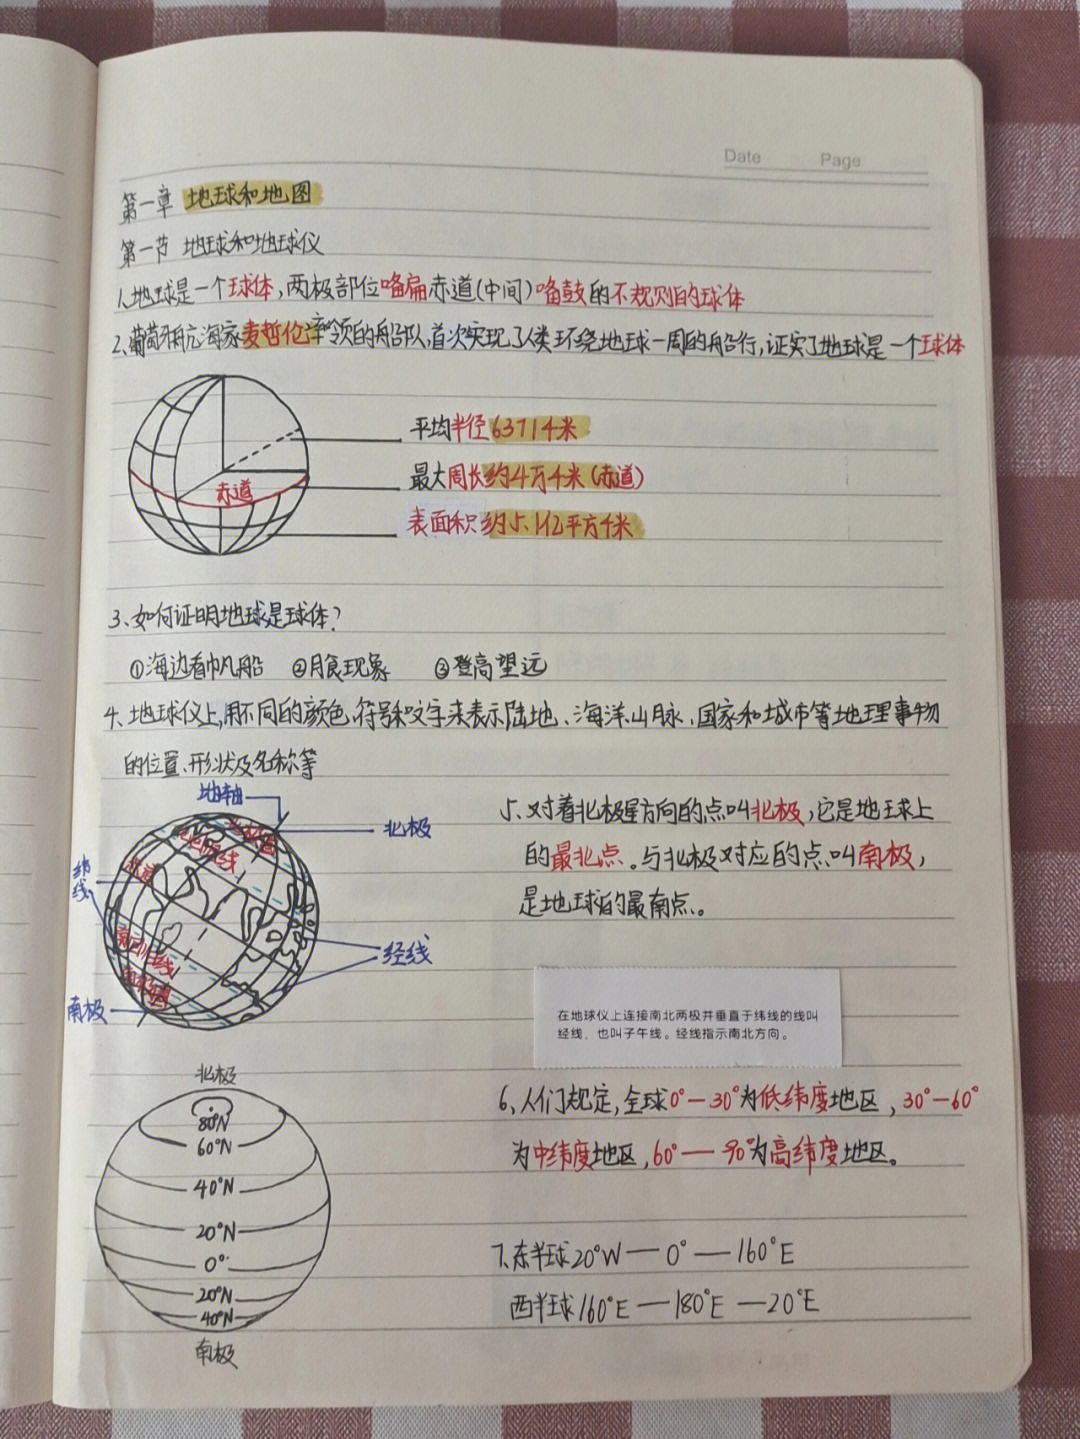 Date Page
第一章 地球和地图
第一节 地球和地球仪
1、地球是一个球体,两极部位略扁赤道(中间)略鼓的不规则的球体
2、葡萄牙航海家麦哲伦率领的船队,首次实现了人类环绕地球一周的船行,证实了地球是一个球体
平均半径6371千米
最大周长约4万千米(赤道)
赤道
表面积约5.1亿平方千米
3、如何证明地球是球体?
①海边看帆船 ②月食现象 ③登高望远
4、地球仪上,用不同的颜色、符号和文字来表示陆地、海洋、山脉、国家和城市等地理事物
的位置、形状及名称等
地轴
北极
纬线
经线
南极
赤道
5、对着北极星方向的点叫北极,它是地球上
的最北点。与北极对应的点叫南极,
是地球的最南点。
在地球仪上连接南北两极并垂直于纬线的线叫
经线,也叫子午线。经线指示南北方向。
北极
80°N
60°N
40°N
20°N
0°
20°N
40°N
南极
6、人们规定,全球0°—30°为低纬度地区,30°—60°
为中纬度地区,60°—90°为高纬度地区。
7、东半球20°W—0°—160°E
西半球160°E—180°E—20°E